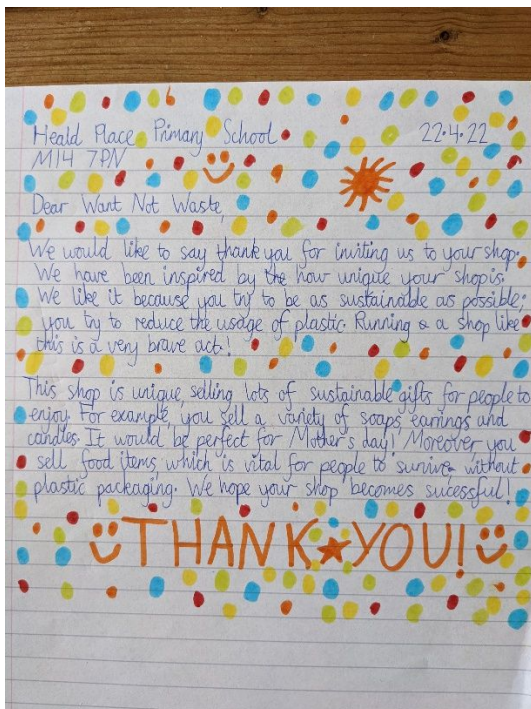 Heald Place Primary School 22.4.22
M14 7PN
Dear Want Not Waste,
We would like to say thank you for inviting us to your shop.
We have been inspired by the how unique your shop is.
We like it because you try to be as sustainable as possible,
you try to reduce the usage of plastic. Running a shop like
this is a very brave act!
This shop is unique, selling lots of sustainable gifts for people to
enjoy. For example, you sell a variety of soaps, earrings and
candles. It would be perfect for Mother's day! Moreover you
sell food items, which is vital for people to survive, without
plastic packaging. We hope your shop becomes sucessful!
THANK YOU!